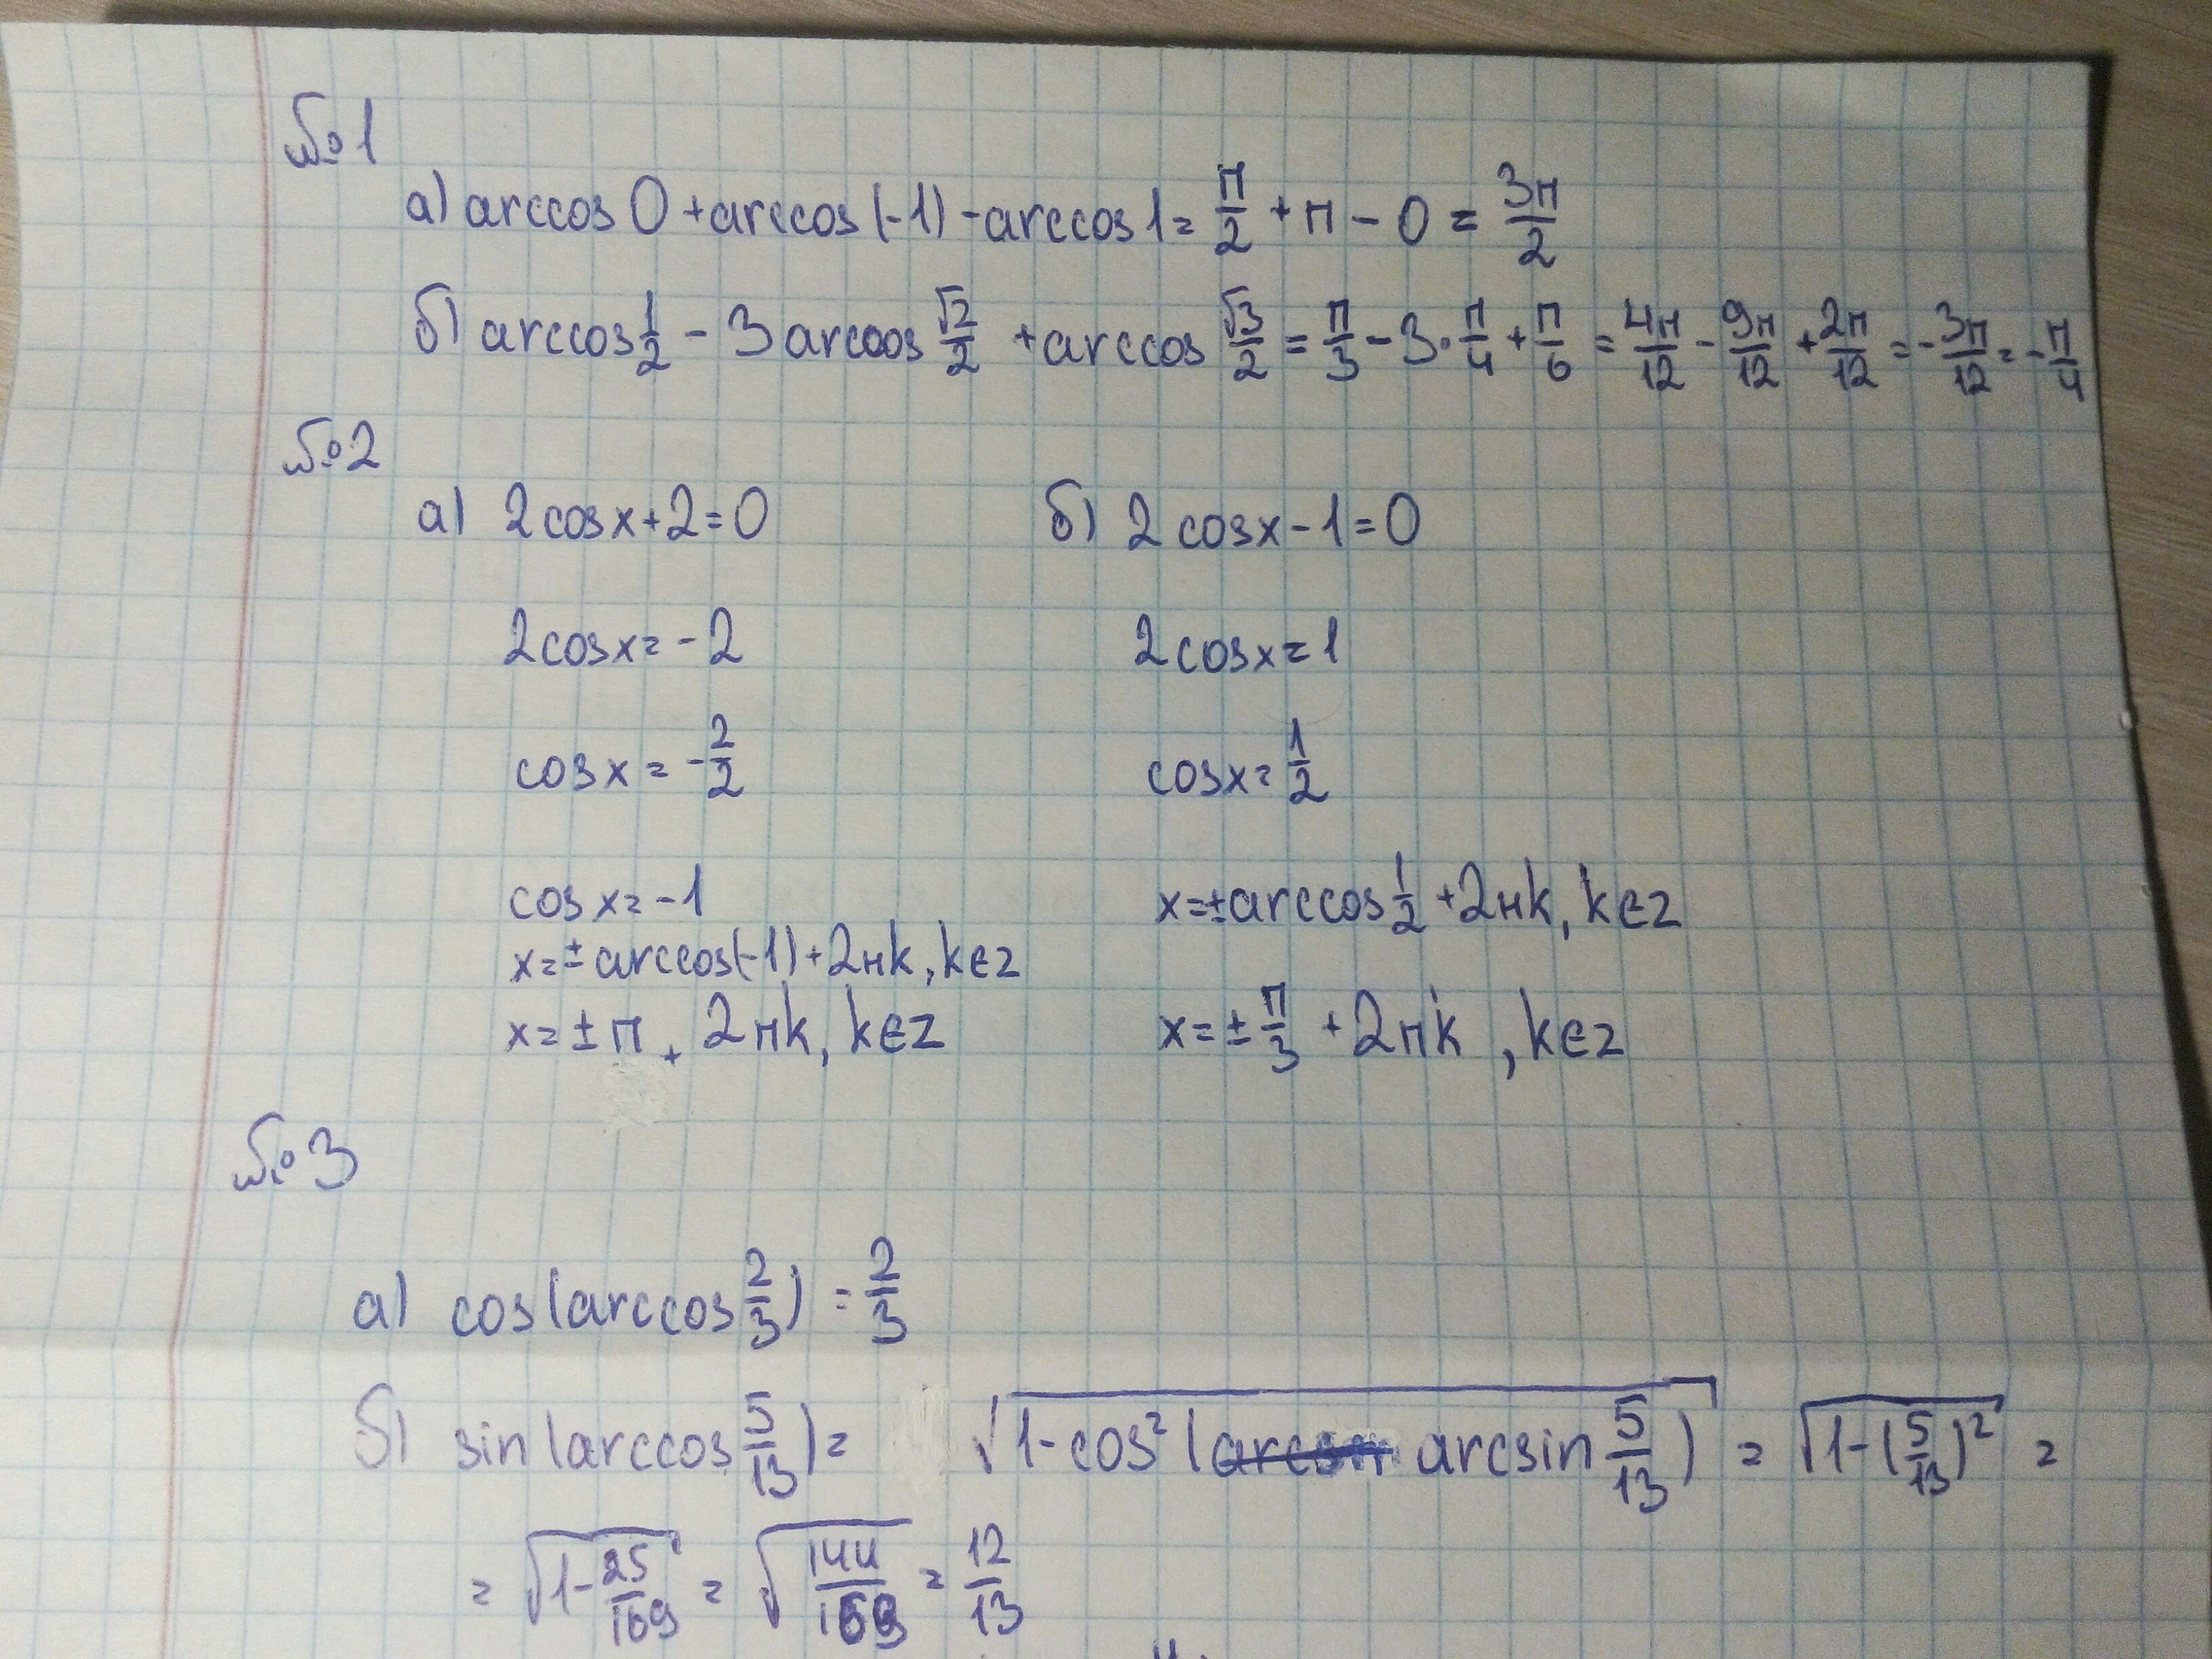 №1
а) arccos 0 + arccos (-1) - arccos 1 = π/2 + π - 0 = 3π/2
б) arccos 1/2 - 3 arccos √2/2 + arccos √3/2 = π/3 - 3·π/4 + π/6 = 4π/12 - 9π/12 + 2π/12 = -3π/12 = -π/4
№2
а) 2cosx+2=0
2cosx=-2
cosx=-2/2
cosx=-1
x=±arccos(-1)+2πk, k∈z
x=±π+2πk, k∈z
б) 2cosx-1=0
2cosx=1
cosx=1/2
x=±arccos 1/2 +2πk, k∈z
x=±π/3 +2πk, k∈z
№3
а) cos(arccos 2/3) = 2/3
б) sin(arccos 5/13) = √(1-cos²(arcsin 5/13)) = √(1-(5/13)²) =
= √(1-25/169) = √(144/169) = 12/13